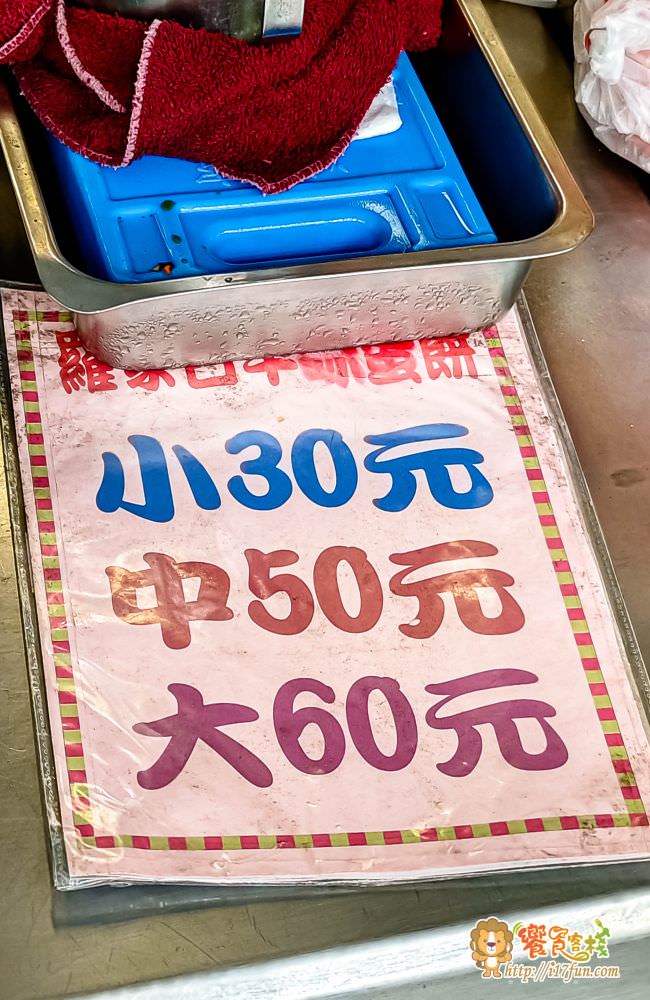 羅家百年蛋餅
小30元
中50元
大60元
饗食客棧
http://i17fun.com